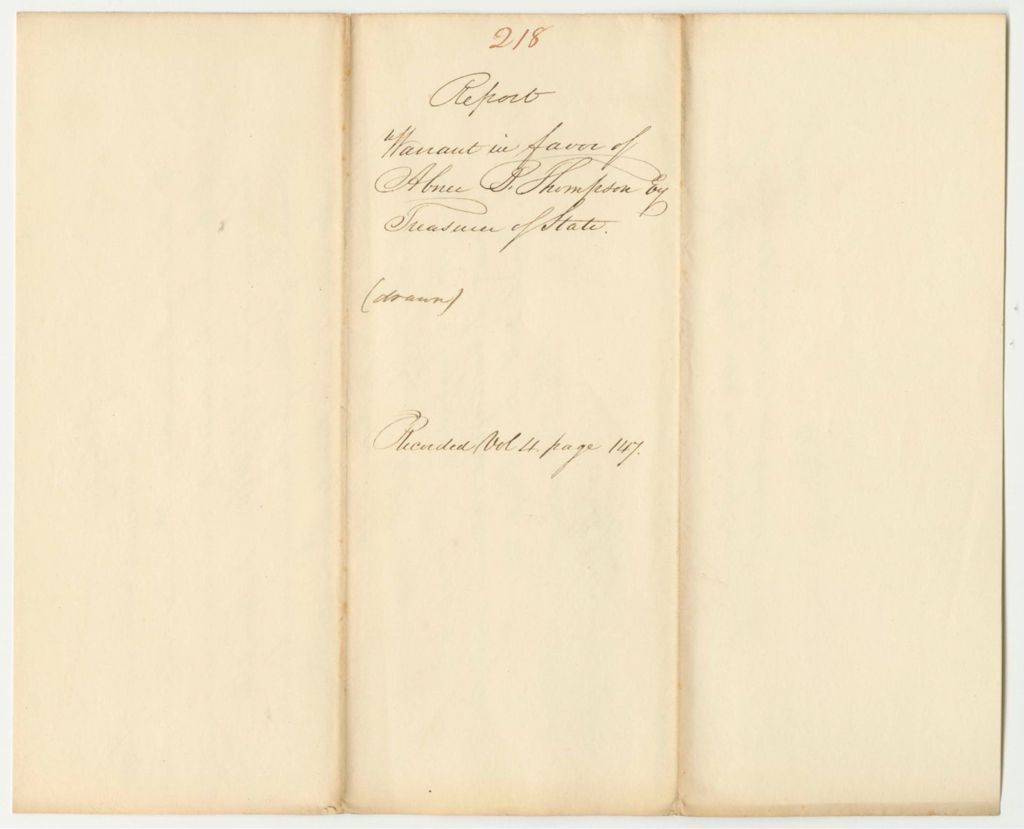 218
Report
Warrant in favor of
Abner B. Thompson Esq
Treasurer of State.
(drawn)
Recorded Vol 4. page 147.